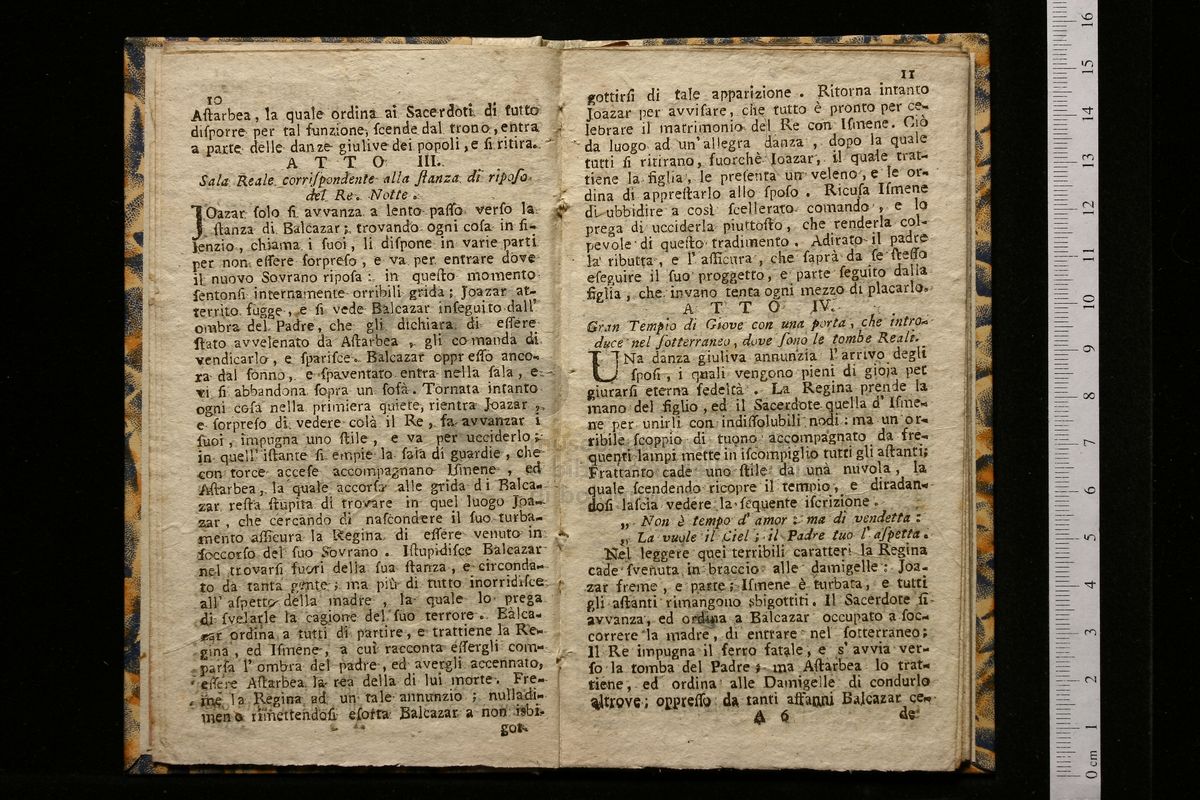 10
Aſtarbea, la quale ordina ai Sacerdoti di tutto
diſporre per tal funzione, ſcende dal trono, entra
a parte delle danze giulive dei popoli, e ſi ritira.
ATTO III.
Sala Reale corriſpondente alla ſtanza di ripoſo
del Re. Notte.
JOazar ſolo ſi avvanza a lento paſſo verſo la
ſtanza di Balcazar; trovando ogni coſa in ſi-
lenzio, chiama i ſuoi, li diſpone in varie parti
per non eſſere ſorpreſo, e va per entrare dove
il nuovo Sovrano ripoſa: in queſto momento
ſentonſi internamente orribili grida; Joazar at-
territo fugge, e ſi vede Balcazar inſeguito dall'
ombra del Padre, che gli dichiara di eſſere
ſtato avvelenato da Aſtarbea, gli comanda di
vendicarlo, e ſpariſce. Balcazar oppreſſo anco-
ra dal ſonno, e ſpaventato entra nella ſala, e
vi ſi abbandona ſopra un ſofà. Tornata intanto
ogni coſa nella primiera quiete, rientra Joazar,
e ſorpreſo di vedere colà il Re, fa avvanzar i
ſuoi, impugna uno ſtile, e va per ucciderlo;
in quell' iſtante ſi empie la ſala di guardie, che
con torce acceſe accompagnano Iſmene, ed
Aſtarbea, la quale accorſa alle grida di Balca-
zar reſta ſtupita di trovare in quel luogo Joa-
zar, che cercando di naſcondere il ſuo turba-
mento aſſicura la Regina di eſſere venuto in
ſoccorſo del ſuo Sovrano. Iſtupidiſce Balcazar
nel trovarſi fuori della ſua ſtanza, e circonda-
to da tanta gente; ma più di tutto inorridiſce
all' aſpetto della madre, la quale lo prega
di ſvelarle la cagione del ſuo terrore. Balca-
zar ordina a tutti di partire, e trattiene la Re-
gina, ed Iſmene, a cui racconta eſſergli com-
parſa l' ombra del padre, ed avergli accennato,
eſſere Aſtarbea la rea della di lui morte. Fre-
me la Regina ad un tale annunzio; nulladi-
meno rimettendoſi eſorta Balcazar a non isbi-
got-
11
gottirſi di tale apparizione. Ritorna intanto
Joazar per avviſare, che tutto è pronto per ce-
lebrare il matrimonio del Re con Iſmene. Ciò
da luogo ad un' allegra danza, dopo la quale
tutti ſi ritirano, fuorchè Ioazar, il quale trat-
tiene la figlia, le preſenta un veleno, e le or-
dina di appreſtarlo allo ſpoſo. Ricuſa Iſmene
di ubbidire a così ſcellerato comando, e lo
prega di ucciderla piuttoſto, che renderla col-
pevole di queſto tradimento. Adirato il padre
la ributta, e l' aſſicura, che ſaprà da ſe ſteſſo
eſeguire il ſuo proggetto, e parte ſeguito dalla
figlia, che invano tenta ogni mezzo di placarlo.
ATTO IV.
Gran Tempio di Giove con una porta, che intro-
duce nel ſotterraneo, dove ſono le tombe Reali.
UNa danza giuliva annunzia l' arrivo degli
ſpoſi, i quali vengono pieni di gioja per
giurarſi eterna fedeltà. La Regina prende la
mano del figlio, ed il Sacerdote quella d' Iſme-
ne per unirli con indiſſolubili nodi: ma un or-
ribile ſcoppio di tuono accompagnato da fre-
quenti lampi mette in iſcompiglio tutti gli aſtanti;
Frattanto cade uno ſtile da una nuvola, la
quale ſcendendo ricopre il tempio, e diradan-
doſi laſcia vedere la ſequente iſcrizione.
„ Non è tempo d' amor: ma di vendetta:
„ La vuole il Ciel; il Padre tuo l' aſpetta.
Nel leggere quei terribili caratteri la Regina
cade ſvenuta in braccio alle damigelle: Joa-
zar freme, e parte; Iſmene è turbata, e tutti
gli aſtanti rimangono sbigottiti. Il Sacerdote ſi
avvanza, ed ordina a Balcazar occupato a ſoc-
correre la madre, di entrare nel ſotterraneo;
Il Re impugna il ferro fatale, e s' avvia ver-
ſo la tomba del Padre; ma Aſtarbea lo trat-
tiene, ed ordina alle Damigelle di condurlo
altrove; oppreſſo da tanti affanni Balcazar ce-
A 6
de
0 cm 1 2 3 4 5 6 7 8 9 10 11 12 13 14 15 16